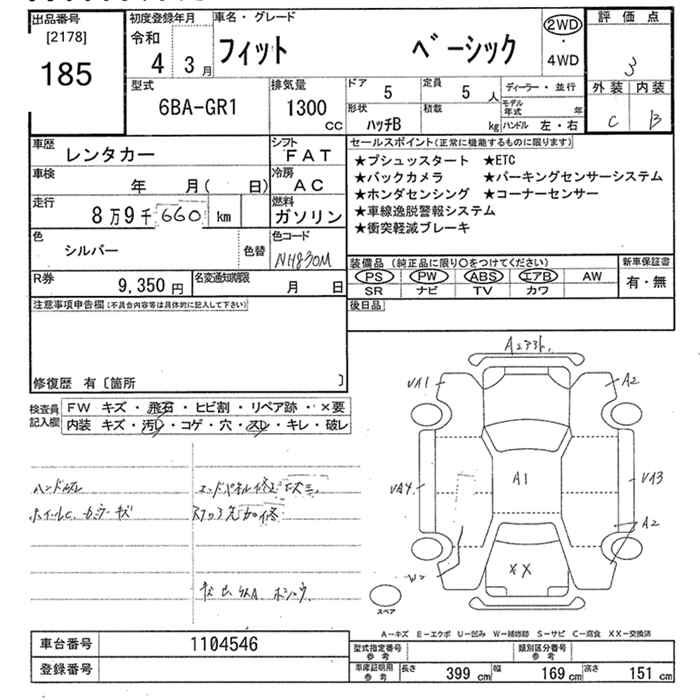 出品番号
[2178]
185
初度登録年月
令和
4 3月
車名・グレード
フィット ベーシック
2WD
・
4WD
評価点
3
外装 内装
C B
型式
6BA-GR1
排気量
1300
CC
ドア 5
定員 5人
形状
ハッチB
積載
kg
ディーラー・並行
モデル年式 年
ハンドル 左・右
車歴
レンタカー
シフト
FAT
車検
年 月( 日)
冷房
AC
走行
8万9千660 km
燃料
ガソリン
色
シルバー
色替
色コード
NH830M
R券
9,350円
名変通知期限
月 日
セールスポイント(正常に機能するものに限ります)
★プシュッスタート ★ETC
★バックカメラ ★パーキングセンサーシステム
★ホンダセンシング ★コーナーセンサー
★車線逸脱警報システム
★衝突軽減ブレーキ
装備品(純正品に限り○をつけてください)
PS PW ABS エアB AW
SR ナビ TV カワ
新車保証書
有・無
後日品
注意事項申告欄(不具合内容等は具体的に記入して下さい)
修復歴 有〔箇所 〕
検査員
記入欄
FW キズ・飛石・ヒビ割・リペア跡・×要
内装 キズ・汚レ・コゲ・穴・スレ・キレ・破レ
ハンドルスレ
A2
UA1
A2
A1
UA4
UA3
A2
W2
XX
スペア
A−キズ E−エクボ U−凹み W−補修跡 S−サビ C−腐食 XX−交換済
車台番号
1104546
登録番号
型式指定番号
参考
類別区分番号
参考
車庫証明用
参考
長さ 399 cm 幅 169 cm 高さ 151 cm